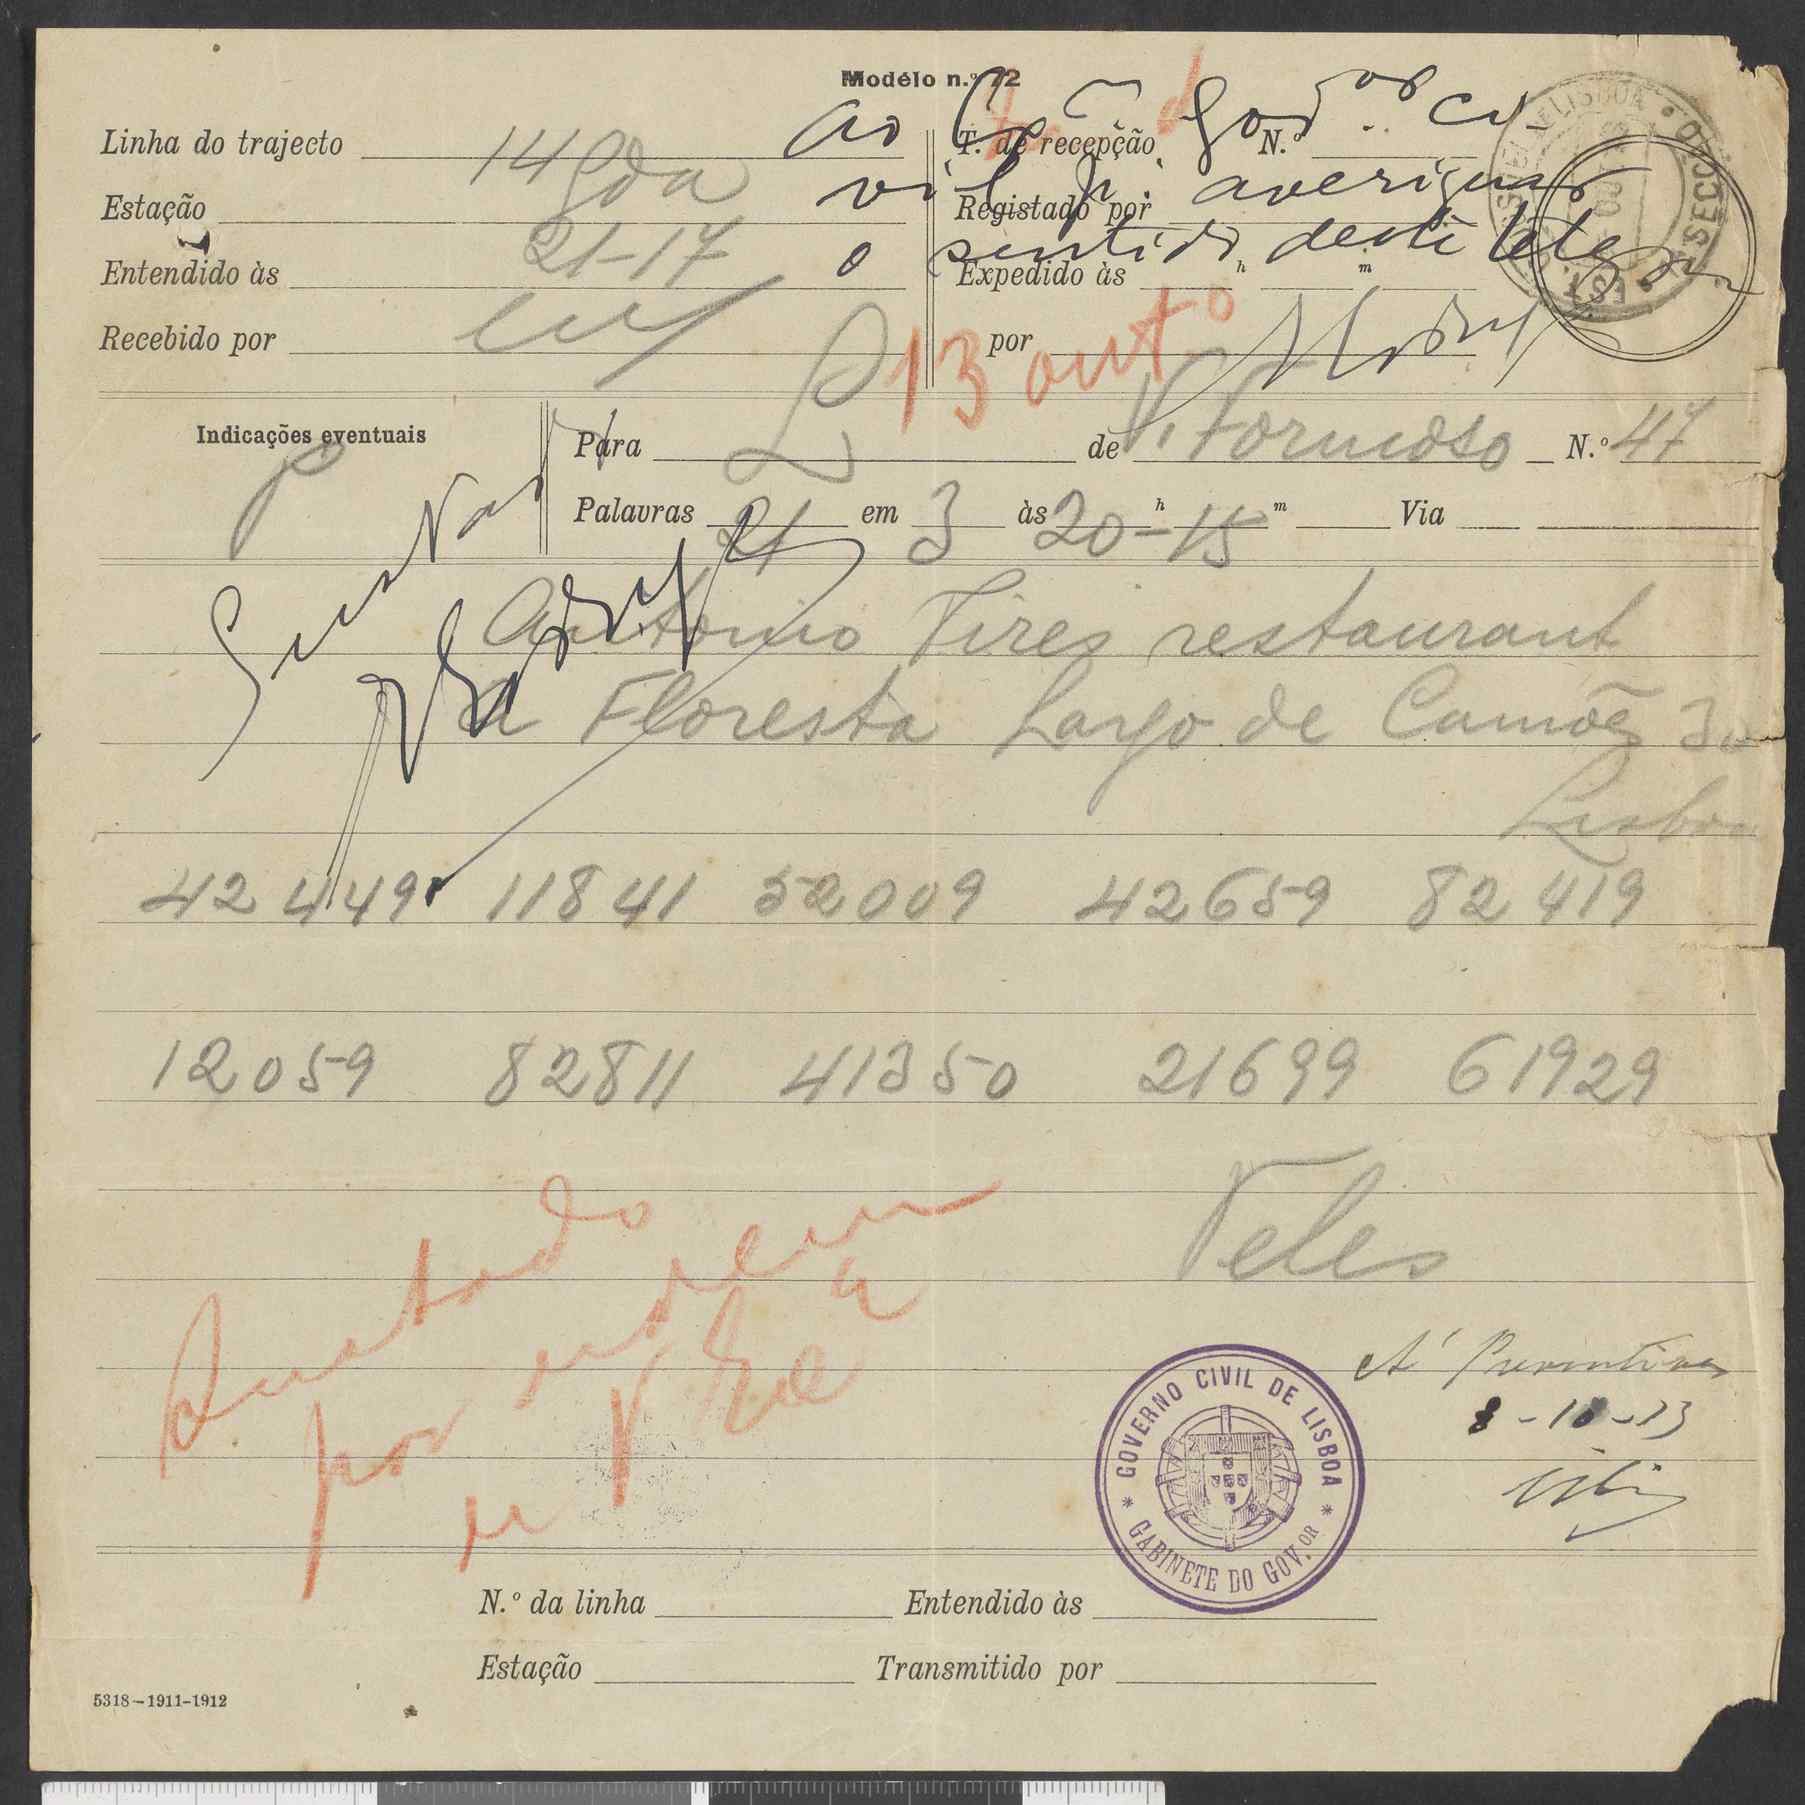 Modélo n.º 72
Ao Gov.or Ci
vil p.ª averiguar
o sentido deste telegr
Linha do trajecto 14 Gda
Estação
Entendido às 21-17
Recebido por
T. de recepção N.º
Registado por
Expedido às h m
por
13 outº
Indicações eventuais
P
Para L de V. Formoso N.º 47
Palavras 21 em 3 às 20 h - 15 m Via
Antonio Pires restaurant
a Floresta Largo de Camões 30
Lisboa
42449 11841 52009 42659 82419
12059 82811 41350 21699 61929
Veles
Sustado
por ordem
A' Preventiva
8-10-13
GOVERNO CIVIL DE LISBOA
GABINETE DO GOV.OR
N.º da linha Entendido às
Estação Transmitido por
5318-1911-1912